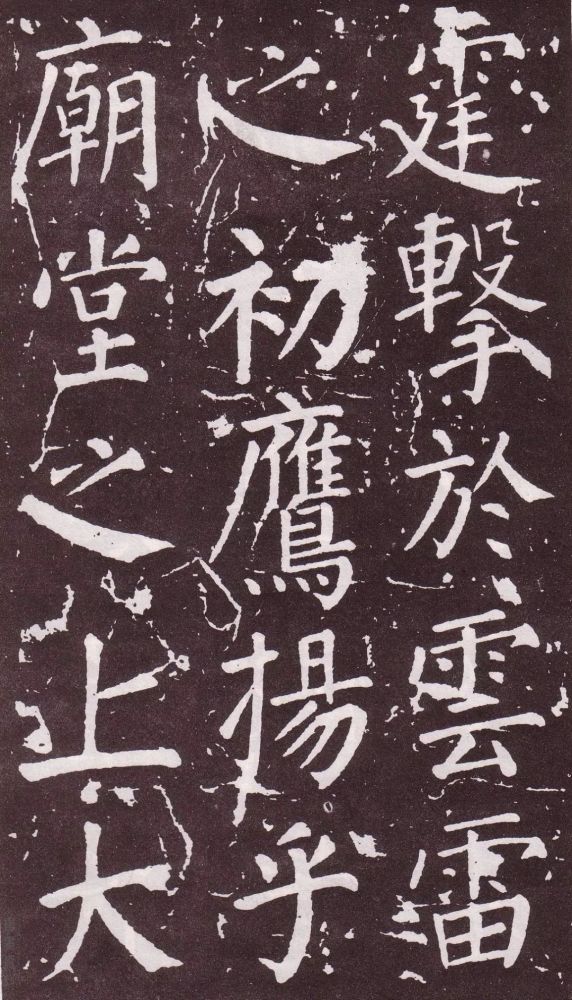 霆擊於雲雷
之初鷹揚乎
廟堂之上大